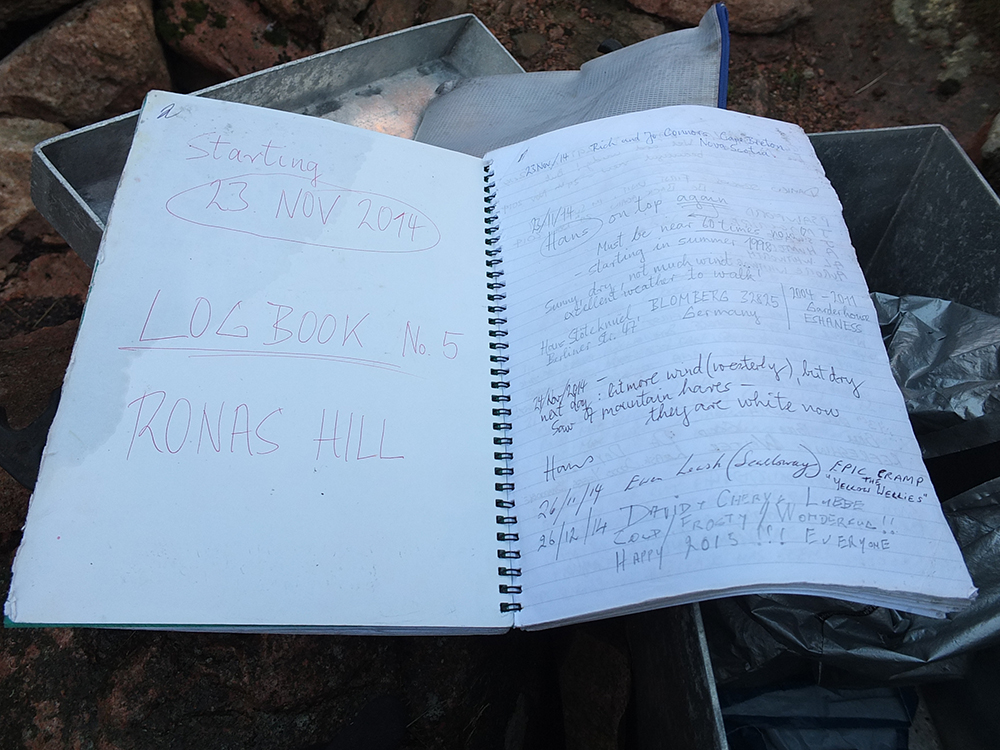 Starting
23 NOV 2014
LOG BOOK No. 5
RONAS HILL
23 Nov/14 Rich and Jo Connors, Cape Breton
Nova Scotia.
23/11/14
Hans on top again
Must be near 60 times now
- starting in summer 1998
Sunny, dry, not much wind
excellent weather to walk!
Hans Stölknuch, BLOMBERG 32825
Berliner Str. 47 Germany
2004 - 2011
ESHANESS
24 Nov/2014 -
next day: bit more wind (westerly), but dry
Saw mountain hares -
they are white now
Hans
26/11/14 Ewen Leask (Scalloway) EPIC CRAMP
THE
"YELLOW WELLIES"
26/12/14 DAVID + CHERYL
COLD / FROSTY / WONDERFUL!!
HAPPY 2015!!! EVERYONE